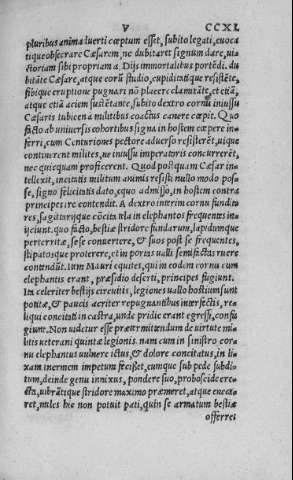 V CCXL
pluribus animaduerti cœptum esset, subito legati, euoca
tique obsecrare Cæsarem, ne dubitaret signum dare, ui⸗
ctoriam sibi propriam a Dijs immortalibus portēdi. du
bitāte Cæsare, atque eorū studio, cupiditatique resistēte,
sibique eruptione pugnari nō placere clamitāte, et etiā,
atque etiā aciem sustētante, subito dextro cornu iniussu
Cæsaris tubicen a militibus coactus canere cœpit. Quo
facto ab uniuersis cohortibus signa in hostem cœpere in⸗
ferri, cum Centuriones pectore aduerso resisterēt, uique
continerent milites, ne iniussu imperatoris concurrerēt,
nec quicquam proficerent. Quod postquam Cæsar in⸗
tellexit, incitatis militum animis resisti nullo modo pos⸗
se, signo felicitatis dato, equo admisso, in hostem contra
principes ire contendit. A dextro interim cornu fundito
res, sagittarijque cōcita tela in elephantos frequentes in⸗
ijciunt. quo facto, bestiæ stridore fundarum, lapidumque
perterritæ, sese conuertere, & suos post se frequentes,
stipatosque proterere, et in portas ualli semifactas ruere
contendūt. tum Mauri equites, qui in eodem cornu cum
elephantis erant, præsidio deserti, principes fugiunt.
Ita celeriter bestijs circuitis, legiones uallo hostium sunt
potitæ, & paucis acriter repugnantibus interfectis, re⸗
liqui concitati in castra, unde pridie erant egressi, confu
giunt. Non uidetur esse prætermittendum de uirtute mi⸗
litis ueterani quintæ legionis. nam cum in sinistro cor⸗
nu elephantus uulnere ictus, & dolore concitatus, in li⸗
xam inermem impetum fecisset, eumque sub pede subdi⸗
tum, deinde genu innixus, pondere suo, proboscide ere⸗
cta, uibrātique stridore maximo præmeret, atque eneca⸗
ret, miles hic non potuit pati, quin se armatum bestiæ
offerret